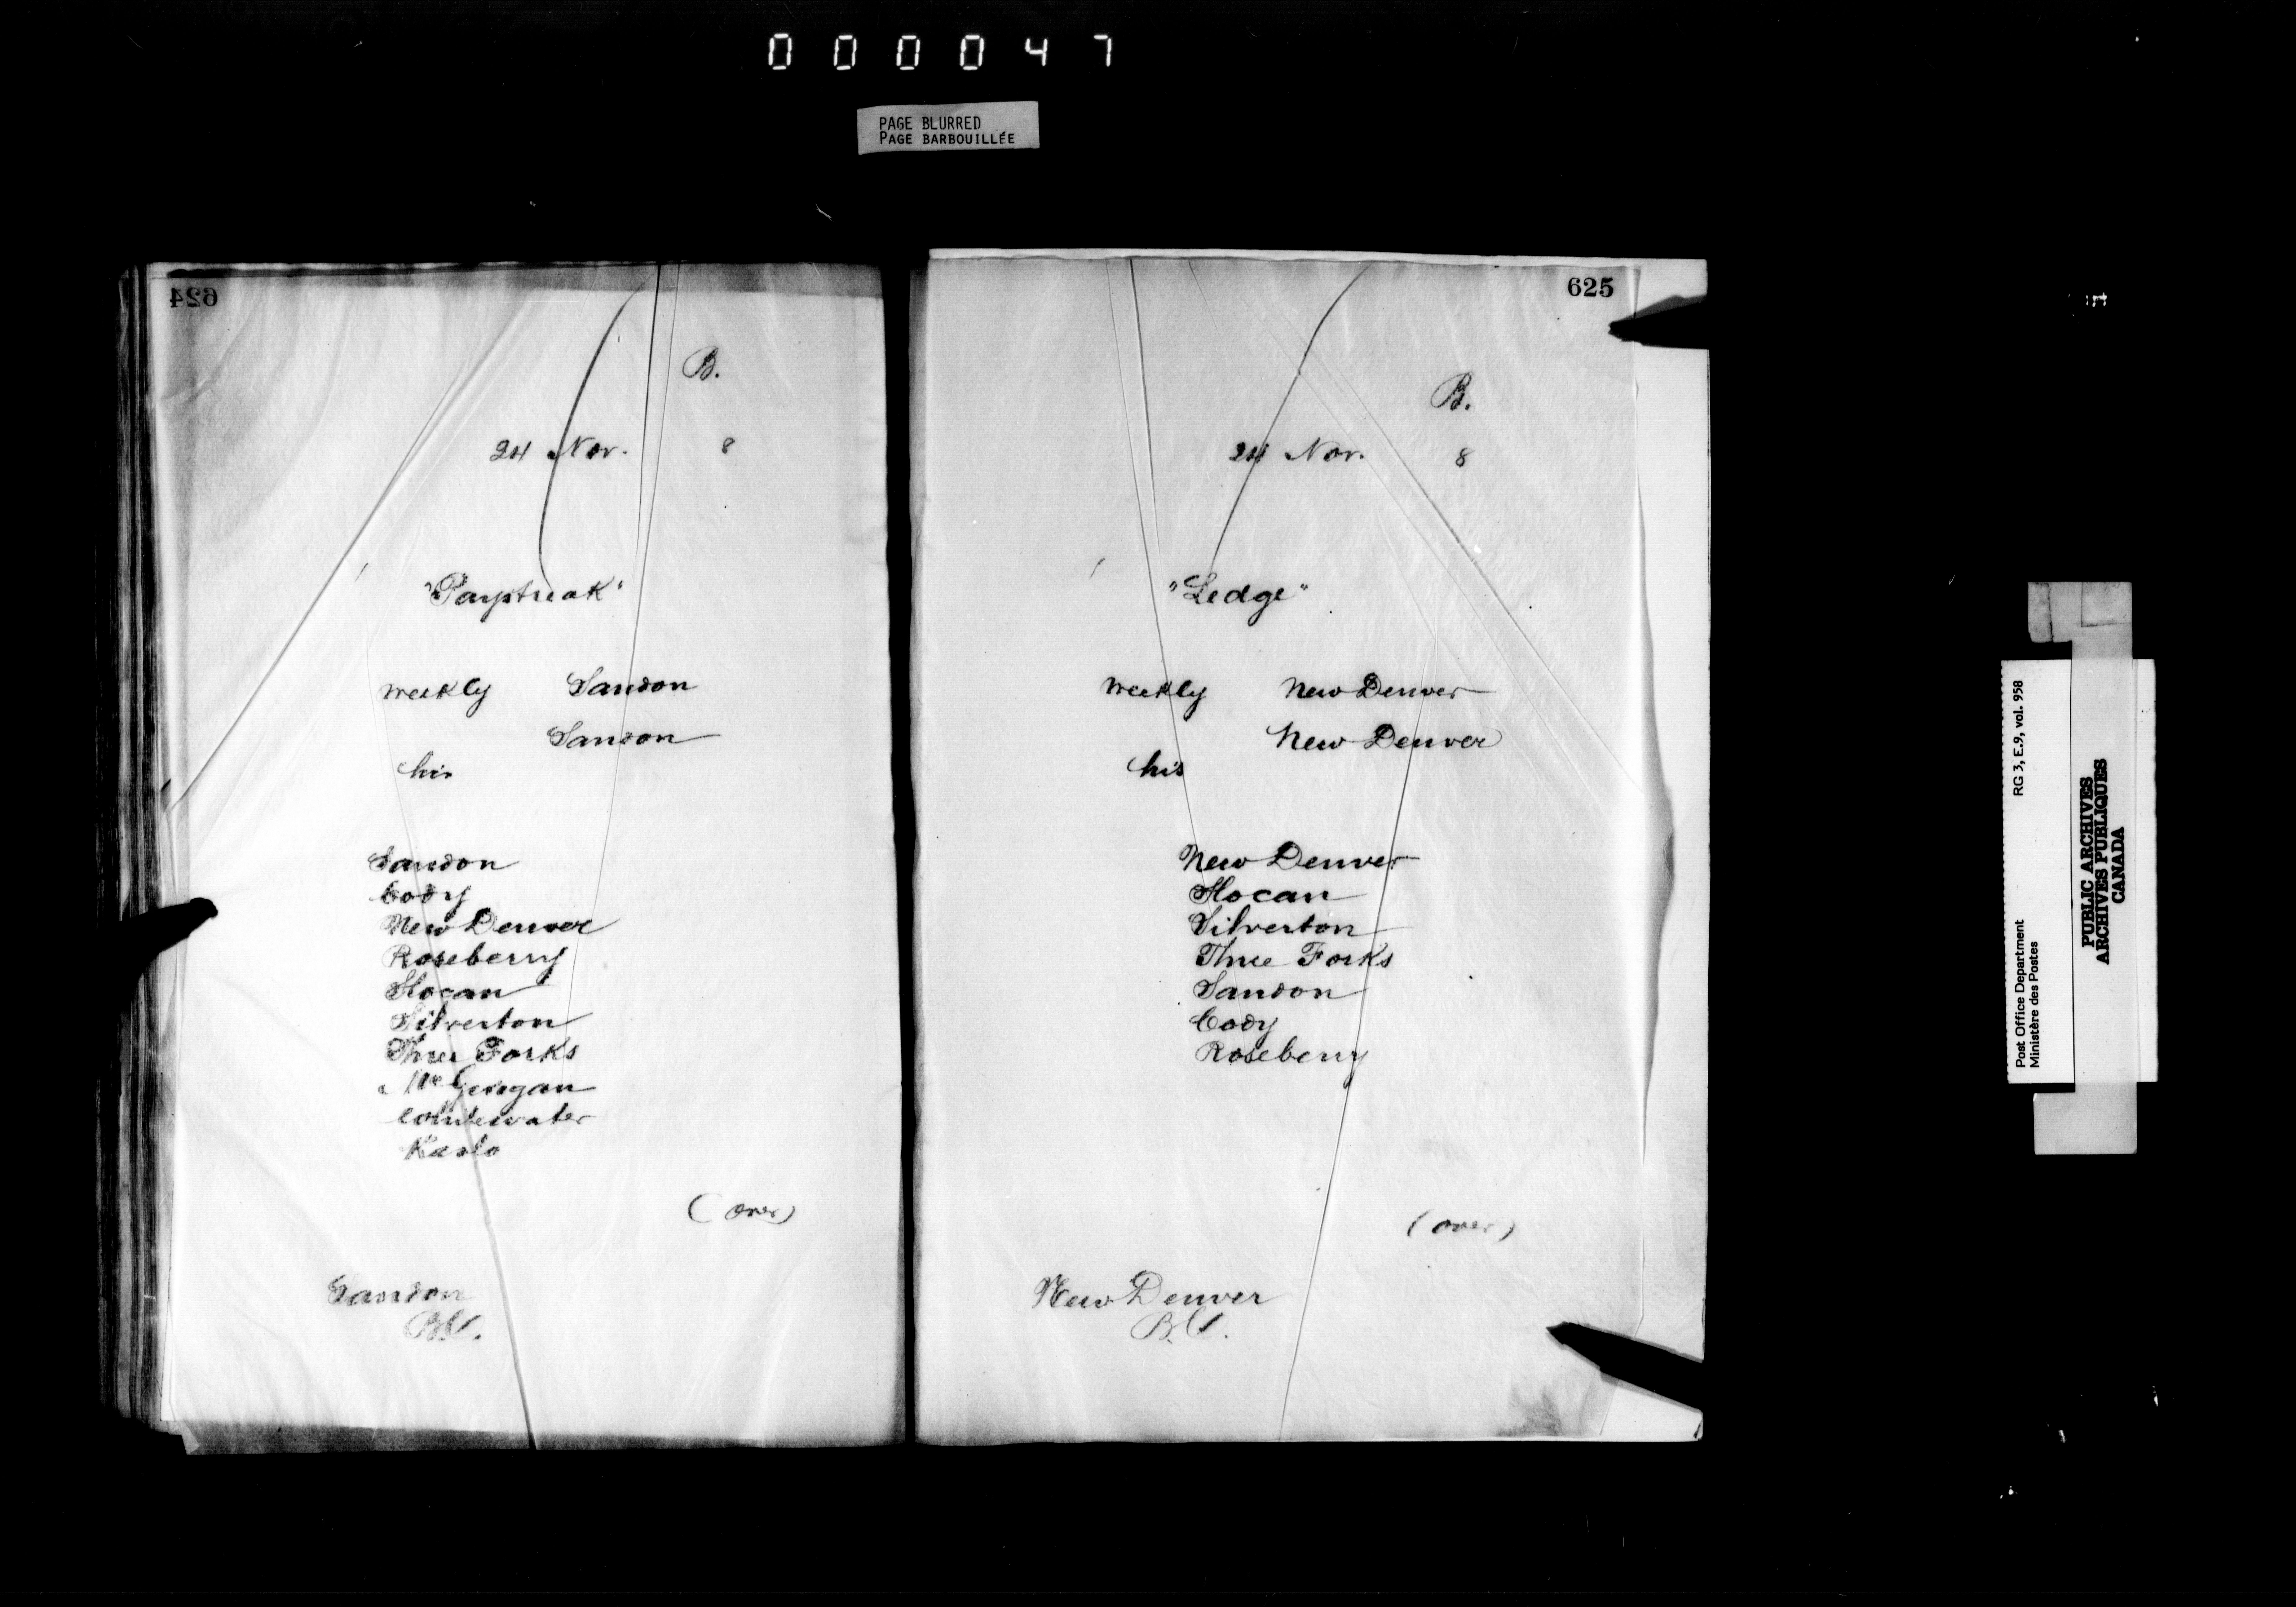 000047
PAGE BLURRED
PAGE BARBOUILLÉE
624
B.
24 Nov. 8
"Paystreak"
weekly Sandon
Sandon
his
Sandon
Cody
New Denver
Roseberry
Slocan
Silverton
Three Forks
McGuigan
Whitewater
Kaslo
(over)
Sandon
B.C.
625
B.
24 Nov. 8
"Ledge"
weekly New Denver
New Denver
his
New Denver
Slocan
Silverton
Three Forks
Sandon
Cody
Roseberry
(over)
New Denver
B.C.
Post Office Department RG 3, E.9, vol. 958
Ministère des Postes
PUBLIC ARCHIVES
ARCHIVES PUBLIQUES
CANADA